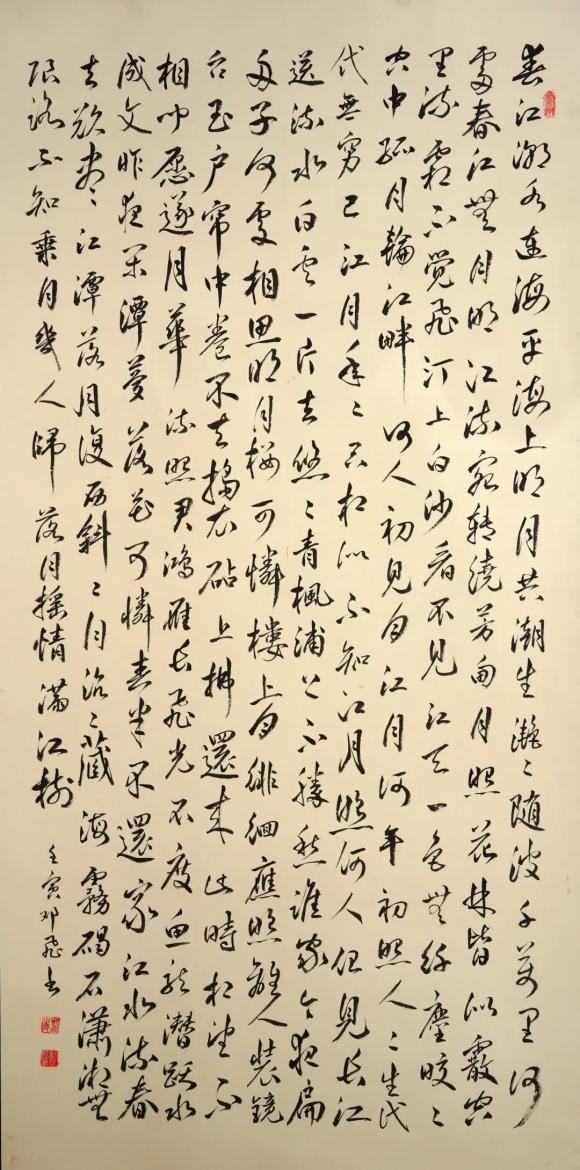 春江潮水連海平海上明月共潮生灔〻随波千万里何
處春江無月明江流宛转繞芳甸月照花林皆似霰空
里流霜不覺飛汀上白沙看不見江天一色無纤塵皎〻
空中孤月輪江畔何人初見月江月何年初照人〻生代
代無窮已江月年〻只相似不知江月照何人但見長江
送流水白雲一片去悠〻青楓浦上不勝愁誰家今夜扁
舟子何處相思明月楼可憐楼上月徘徊應照離人裝鏡
台玉户帘中卷不去搗衣砧上拂還来此時相望不
相闻愿逐月華流照君鴻雁長飛光不度鱼龍潜躍水
成文昨夜闲潭夢落花可憐春半不還家江水流春
去欲尽〻江潭落月復西斜〻月沉〻藏海霧碣石瀟湘無
限路不知乘月幾人歸落月摇情满江樹
壬寅邓飛书